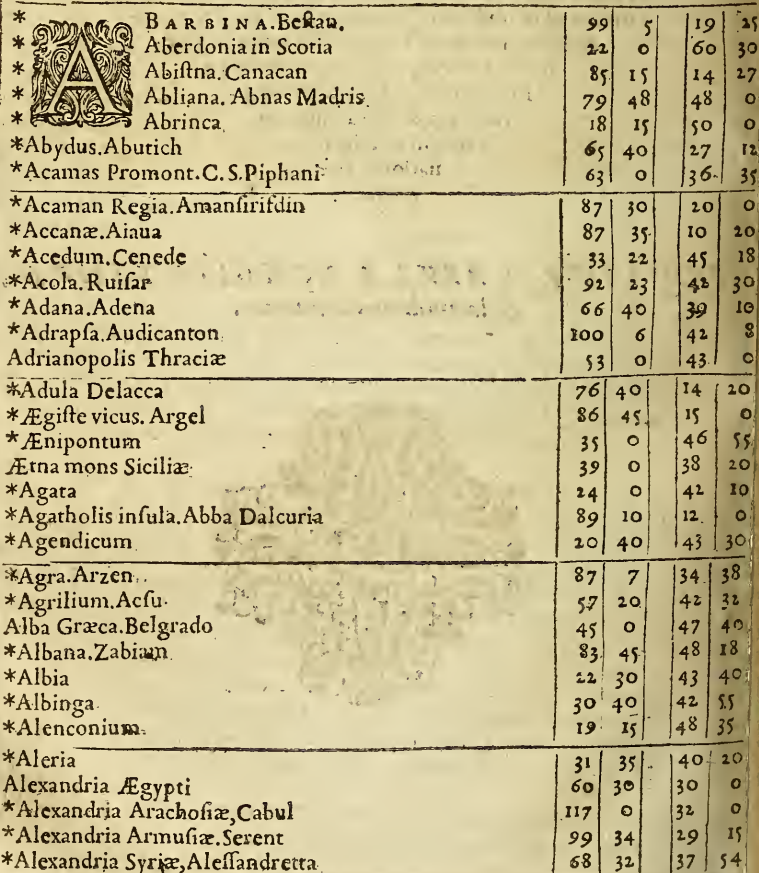 * ABARBINA.Beſtau. 99 5 19 25
* Aberdonia in Scotia 22 0 60 30
* Abiſtna.Canacan 85 15 14 27
* Abliana. Abnas Madris 79 48 48 0
* Abrinca 18 15 50 0
*Abydus.Abutich 65 40 27 12
*Acamas Promont.C.S.Piphani 63 0 36 35
*Acaman Regia.Amanſirifdin 87 30 20 0
*Accanæ.Aiaua 87 35 10 20
*Acedum.Cenede 33 22 45 18
*Acola.Ruiſar 92 23 42 30
*Adana.Adena 66 40 39 10
*Adrapſa.Audicanton 100 6 42 8
Adrianopolis Thraciæ 53 0 43 0
*Adula Delacca 76 40 14 20
*Ægiſte vicus. Argel 86 45 15 0
*Ænipontum 35 0 46 55
Ætna mons Siciliæ 39 0 38 20
*Agata 24 0 42 10
*Agatholis inſula.Abba Dalcuria 89 10 12 0
*Agendicum 20 40 43 30
*Agra.Arzen 87 7 34 38
*Agrilium.Acſu 57 20 42 32
Alba Græca.Belgrado 45 0 47 40
*Albana.Zabiam 83 45 48 18
*Albia 22 30 43 40
*Albinga 30 40 42 55
*Alenconium 19 15 48 35
*Aleria 31 35 40 20
Alexandria Ægypti 60 30 30 0
*Alexandria Arachoſiæ,Cabul 117 0 32 0
*Alexandria Armuſiæ.Serent 99 34 29 15
*Alexandria Syriæ,Aleſſandretta 68 32 37 54